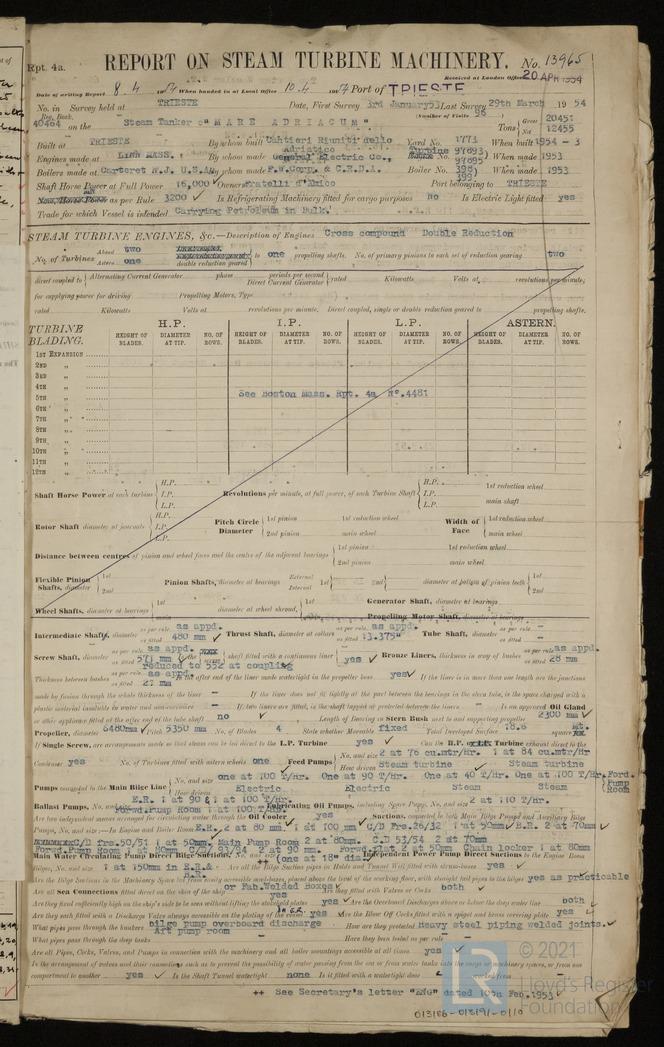 Rpt. 4a.
REPORT ON STEAM TURBINE MACHINERY. No. 13965
Received at London Office 20 APR 1954
Date of writing Report 8.4 When handed in at Local Office 10.4 Port of TRIESTE
No. in Survey held at TRIESTE Date, First Survey 3rd January53 Last Survey 29th March 1954
Reg. Book. (Number of Visits 96
40464 on the Steam Tanker "MARE ADRIACUM" Tons Gross 20451 Net 12455
Built at TRIESTE By whom built Cantieri Riuniti dello Adriatico Yard No. 1771 When built 1954 - 3
Engines made at LINN MASS. By whom made General Electric Co., Turbine When made 1953
Boilers made at Carteret N.J. U.S.A. By whom made Boiler No. When made 1953
Shaft Horse Power at Full Power 16,000 Owners Fratelli d'Amico Port belonging to TRIESTE
as per Rule 3200 Is Refrigerating Machinery fitted for cargo purposes no Is Electric Light fitted yes
Trade for which Vessel is intended Carrying Petroleum in Bulk
STEAM TURBINE ENGINES, &c.—Description of Engines Cross compound Double Reduction
No. of Turbines Ahead two Astern one double reduction geared to one propelling shafts. No. of primary pinions to each set of reduction gearing two
direct coupled to Alternating Current Generator phase periods per second Direct Current Generator rated Kilowatts Volts at revolutions per minute;
for supplying power for driving Propelling Motors, Type
rated Kilowatts Volts at revolutions per minute. Direct coupled, single or double reduction geared to propelling shafts.
TURBINE BLADING. H.P. I.P. L.P. ASTERN.
HEIGHT OF BLADES. DIAMETER AT TIP. NO. OF ROWS. HEIGHT OF BLADES. DIAMETER AT TIP. NO. OF ROWS. HEIGHT OF BLADES. DIAMETER AT TIP. NO. OF ROWS. HEIGHT OF BLADES. DIAMETER AT TIP. NO. OF ROWS.
1ST EXPANSION
2ND "
3RD "
4TH "
5TH "
See Boston Mass. Rpt. 4a No.4481
6TH "
7TH "
8TH "
9TH "
10TH "
11TH "
12TH "
Shaft Horse Power at each turbine H.P. I.P. L.P. Revolutions per minute, at full power, of each Turbine Shaft H.P. I.P. L.P. 1st reduction wheel main shaft
Rotor Shaft diameter at journals H.P. I.P. L.P. Pitch Circle Diameter 1st pinion 2nd pinion 1st reduction wheel main wheel Width of Face 1st reduction wheel main wheel
Distance between centres of pinion and wheel faces and the centre of the adjacent bearings 1st pinion 2nd pinion 1st reduction wheel main wheel
Flexible Pinion Shafts, diameter 1st 2nd Pinion Shafts, diameter at bearings External Internal 1st 2nd diameter at bottom of pinion teeth 1st 2nd
Wheel Shafts, diameter at bearings 1st main diameter at wheel shroud, 1st Generator Shaft, diameter at bearings Propelling Motor Shaft, diameter at bearings
Intermediate Shafts, diameter as per rule as appd. as fitted 480 mm Thrust Shaft, diameter at collars as per rule as appd. as fitted 13.375" Tube Shaft, diameter as per rule - as fitted -
Screw Shaft, diameter as per rule as appd. shaft fitted with a continuous liner yes Bronze Liners, thickness in way of bushes as per rule as appd. as fitted 28 mm
reduced to 552 at coupling
Thickness between bushes as per rule as appd. as fitted 27 mm Is the after end of the liner made watertight in the propeller boss yes If the liner is in more than one length are the junctions
made by fusion through the whole thickness of the liner - If the liner does not fit tightly at the part between the bearings in the stern tube, is the space charged with a
plastic material insoluble in water and non-corrosive - If two liners are fitted, is the shaft lapped or protected between the liners - Is an approved Oil Gland
or other appliance fitted at the after end of the tube shaft no Length of Bearing in Stern Bush next to and supporting propeller 2300 mm
Propeller, diameter 6480mm Pitch 5350 mm No. of Blades 4 State whether Moveable fixed Total Developed Surface 18.6 square mt.
If Single Screw, are arrangements made so that steam can be led direct to the L.P. Turbine yes Can the H.P. Turbine exhaust direct to the
Condenser yes No. of Turbines fitted with astern wheels one Feed Pumps No. and size 2 at 76 cu.mtr/hr. 1 at 84 cu.mtr/Hr
How driven Steam turbine Steam turbine
Pumps connected to the Main Bilge Line No. and size one at 100 T/Hr. One at 90 T/Hr. One at 40 T/Hr. One at 100 T/Hr. Ford. Pump Room
How driven Electric Electric Steam Steam
Ballast Pumps, No. and size E.R. 1 at 90 & 1 at 100 T/Hr. Forwd. Pump Room 1 at 100 T/Hrs. Lubricating Oil Pumps, including Spare Pump, No. and size 2 at 110 T/Hr.
Are two independent means arranged for circulating water through the Oil Cooler yes Suctions, connected to both Main Bilge Pumps and Auxiliary Bilge
Pumps, No. and size:—In Engine and Boiler Room E.R. 2 at 80 mm. 1 at 100 mm C/D Frs.26/32 1 at 50mm B.R. 2 at 70mm
C/D frs.50/51 1 at 50mm. Main Pump Room 2 at 80mm. C.D 53/54 2 at 70mm
Forwd. Pump Room 1 at 80mm C/D/ 83/84 2 at 90 mm. Forwd. 2 at 50 mm Chain locker 1 at 80mm
Main Water Circulating Pump Direct Bilge Suctions, No. and size ++ (one at 18" dia.) Independent Power Pump Direct Suctions to the Engine Room
Bilges, No. and size 1 at 150mm in E.R.& B.R. Are all the Bilge Suction pipes in Holds and Tunnel Well fitted with strums-boxes yes
Are the Bilge Suctions in the Machinery Space led from easily accessible mud-boxes, placed above the level of the working floor, with straight tail pipes to the bilges yes as practicable
Are all Sea Connections fitted direct on the skin of the ship or Fab.Welded Boxes yes Are they fitted with Valves or Cocks both
Are they fixed sufficiently high on the ship's side to be seen without lifting the stokehold plates yes Are the Overboard Discharges above or below the deep water line both
Are they each fitted with a Discharge Valve always accessible on the plating of the vessel yes Are the Blow Off Cocks fitted with a spigot and brass covering plate yes
What pipes pass through the bunkers bilge pump overboard discharge Aft pump room How are they protected Heavy steel piping welded joints.
What pipes pass through the deep tanks Have they been tested as per rule
Are all Pipes, Cocks, Valves, and Pumps in connection with the machinery and all boiler mountings accessible at all times yes
Is the arrangement of valves and their connections such as to prevent the possibility of water passing from the sea or from water tanks into the cargo or machinery spaces, or from one
compartment to another yes Is the Shaft Tunnel watertight none Is it fitted with a watertight door worked from
++ See Secretary's letter "ENG" dated 10th Feb.1953
013186-013191-0110
© 2021
Lloyd's Register
Foundation